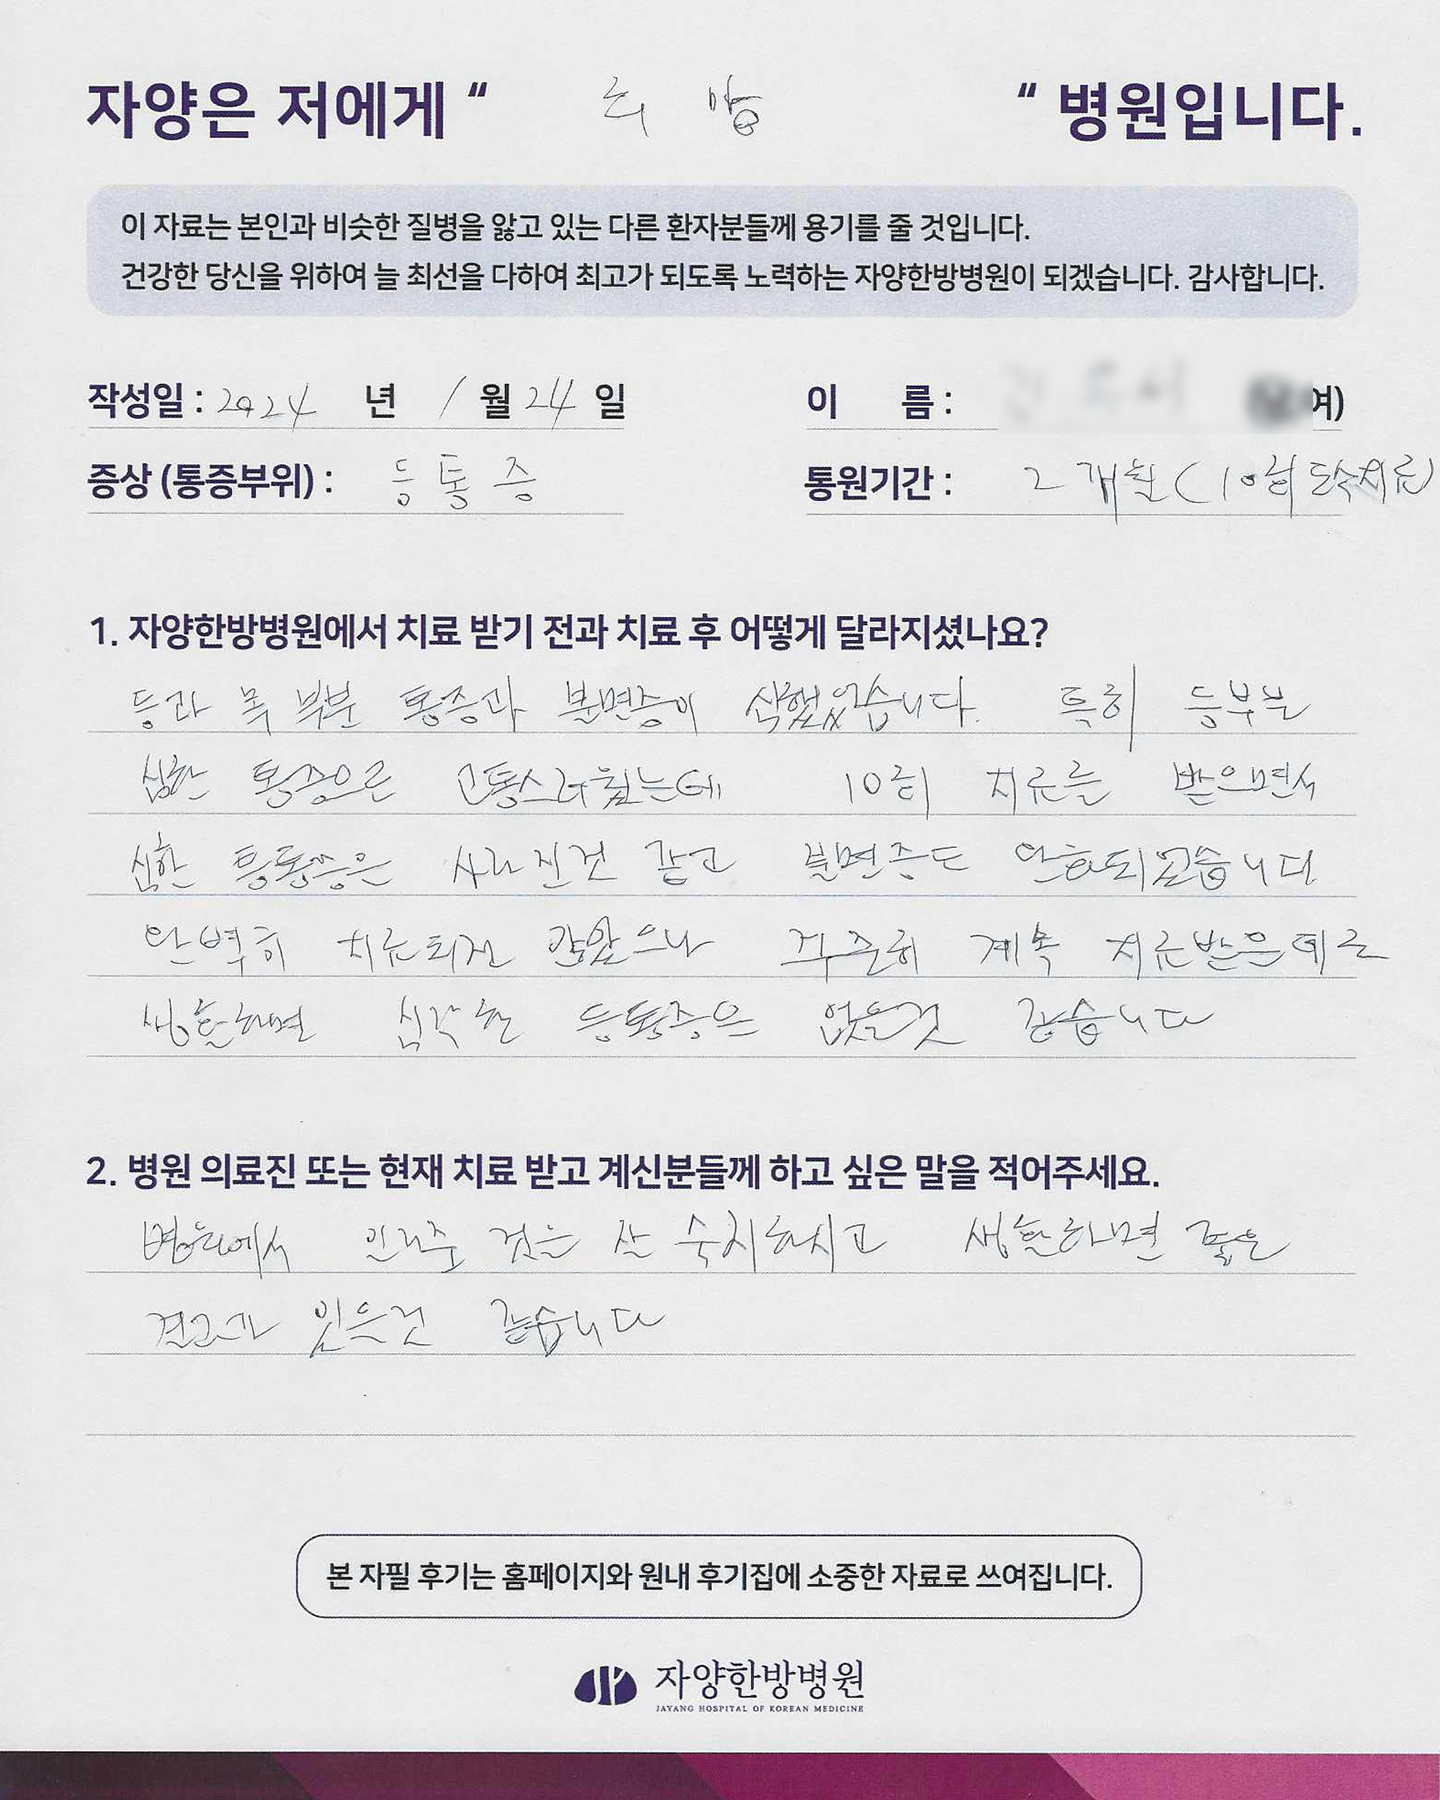 자양은 저에게 “ 희망 “ 병원입니다.
이 자료는 본인과 비슷한 질병을 앓고 있는 다른 환자분들께 용기를 줄 것입니다.
건강한 당신을 위하여 늘 최선을 다하여 최고가 되도록 노력하는 자양한방병원이 되겠습니다. 감사합니다.
작성일 : 2024 년 1 월 24 일 이 름 : 여)
증상 (통증부위) : 등통증 통원기간 : 2개월 (10회 도수치료)
1. 자양한방병원에서 치료 받기 전과 치료 후 어떻게 달라지셨나요?
등과 목 부분 통증과 불면증이 심했었습니다. 특히 등부분
심한 통증으로 고통스러웠는데 10회 치료를 받으면서
심한 등통증은 사라진것 같고 불면증도 완화되었습니다
완벽히 치료되진 않았으나 꾸준히 계속 치료받은데로
생활하면 심각한 등통증은 없을것 같습니다
2. 병원 의료진 또는 현재 치료 받고 계신분들께 하고 싶은 말을 적어주세요.
병원에서 알려준 것을 잘 숙지하시고 생활하면 좋은
결과가 있을것 같습니다
본 자필 후기는 홈페이지와 원내 후기집에 소중한 자료로 쓰여집니다.
자양한방병원
JAYANG HOSPITAL OF KOREAN MEDICINE